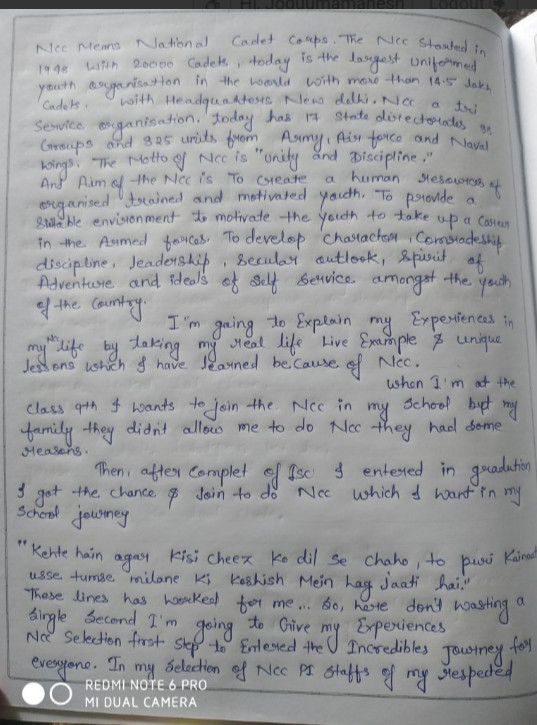 Hi Jodduumamahesh Logout
Ncc Means National Cadet Coups. The Ncc Started in
1948 With 20000 Cadets, today is the largest Uniformed
youth organisation in the would With more than 14.5 lakh
Cadets. With Headquarters New delhi. Ncc a tri
Service organisation. today has 17 State directorates
Groups and 825 units from Army, Air force and Naval
Wings. The Motto of Ncc is "Unity and Discipline."
And Aim of the Ncc is To Create a human resources of
organised trained and motivated youth. To provide a
Suitable environment to motivate the youth to take up a Career
in the Armed forces. To develop Character, Comradeship
discipline, leadership, Secular outlook, Spirit of
Adventure and ideals of Self Service amongst the youth
of the Country.
I'm going to Explain my Experiences in
my life by taking my real life Live Example & unique
lessons which I have learned because of Ncc.
When I'm at the
class 9th I wants to join the Ncc in my School but my
family they didn't allow me to do Ncc they had some
reasons.
Then, after Complet of Isc I entered in graduation
I got the chance & Join to do Ncc which I want in my
School journey
"Kehte hain agar kisi cheez ko dil se chaho, to puri Kainaat
usse tumse milane ki koshish Mein lag jaati hai."
These lines has worked for me... So, here don't wasting a
Single Second I'm going to Give my Experiences
Ncc Selection first step to Entered the Incredibles Journey for
everyone. In my Selection of Ncc PI Staffs of my respected
REDMI NOTE 6 PRO
MI DUAL CAMERA